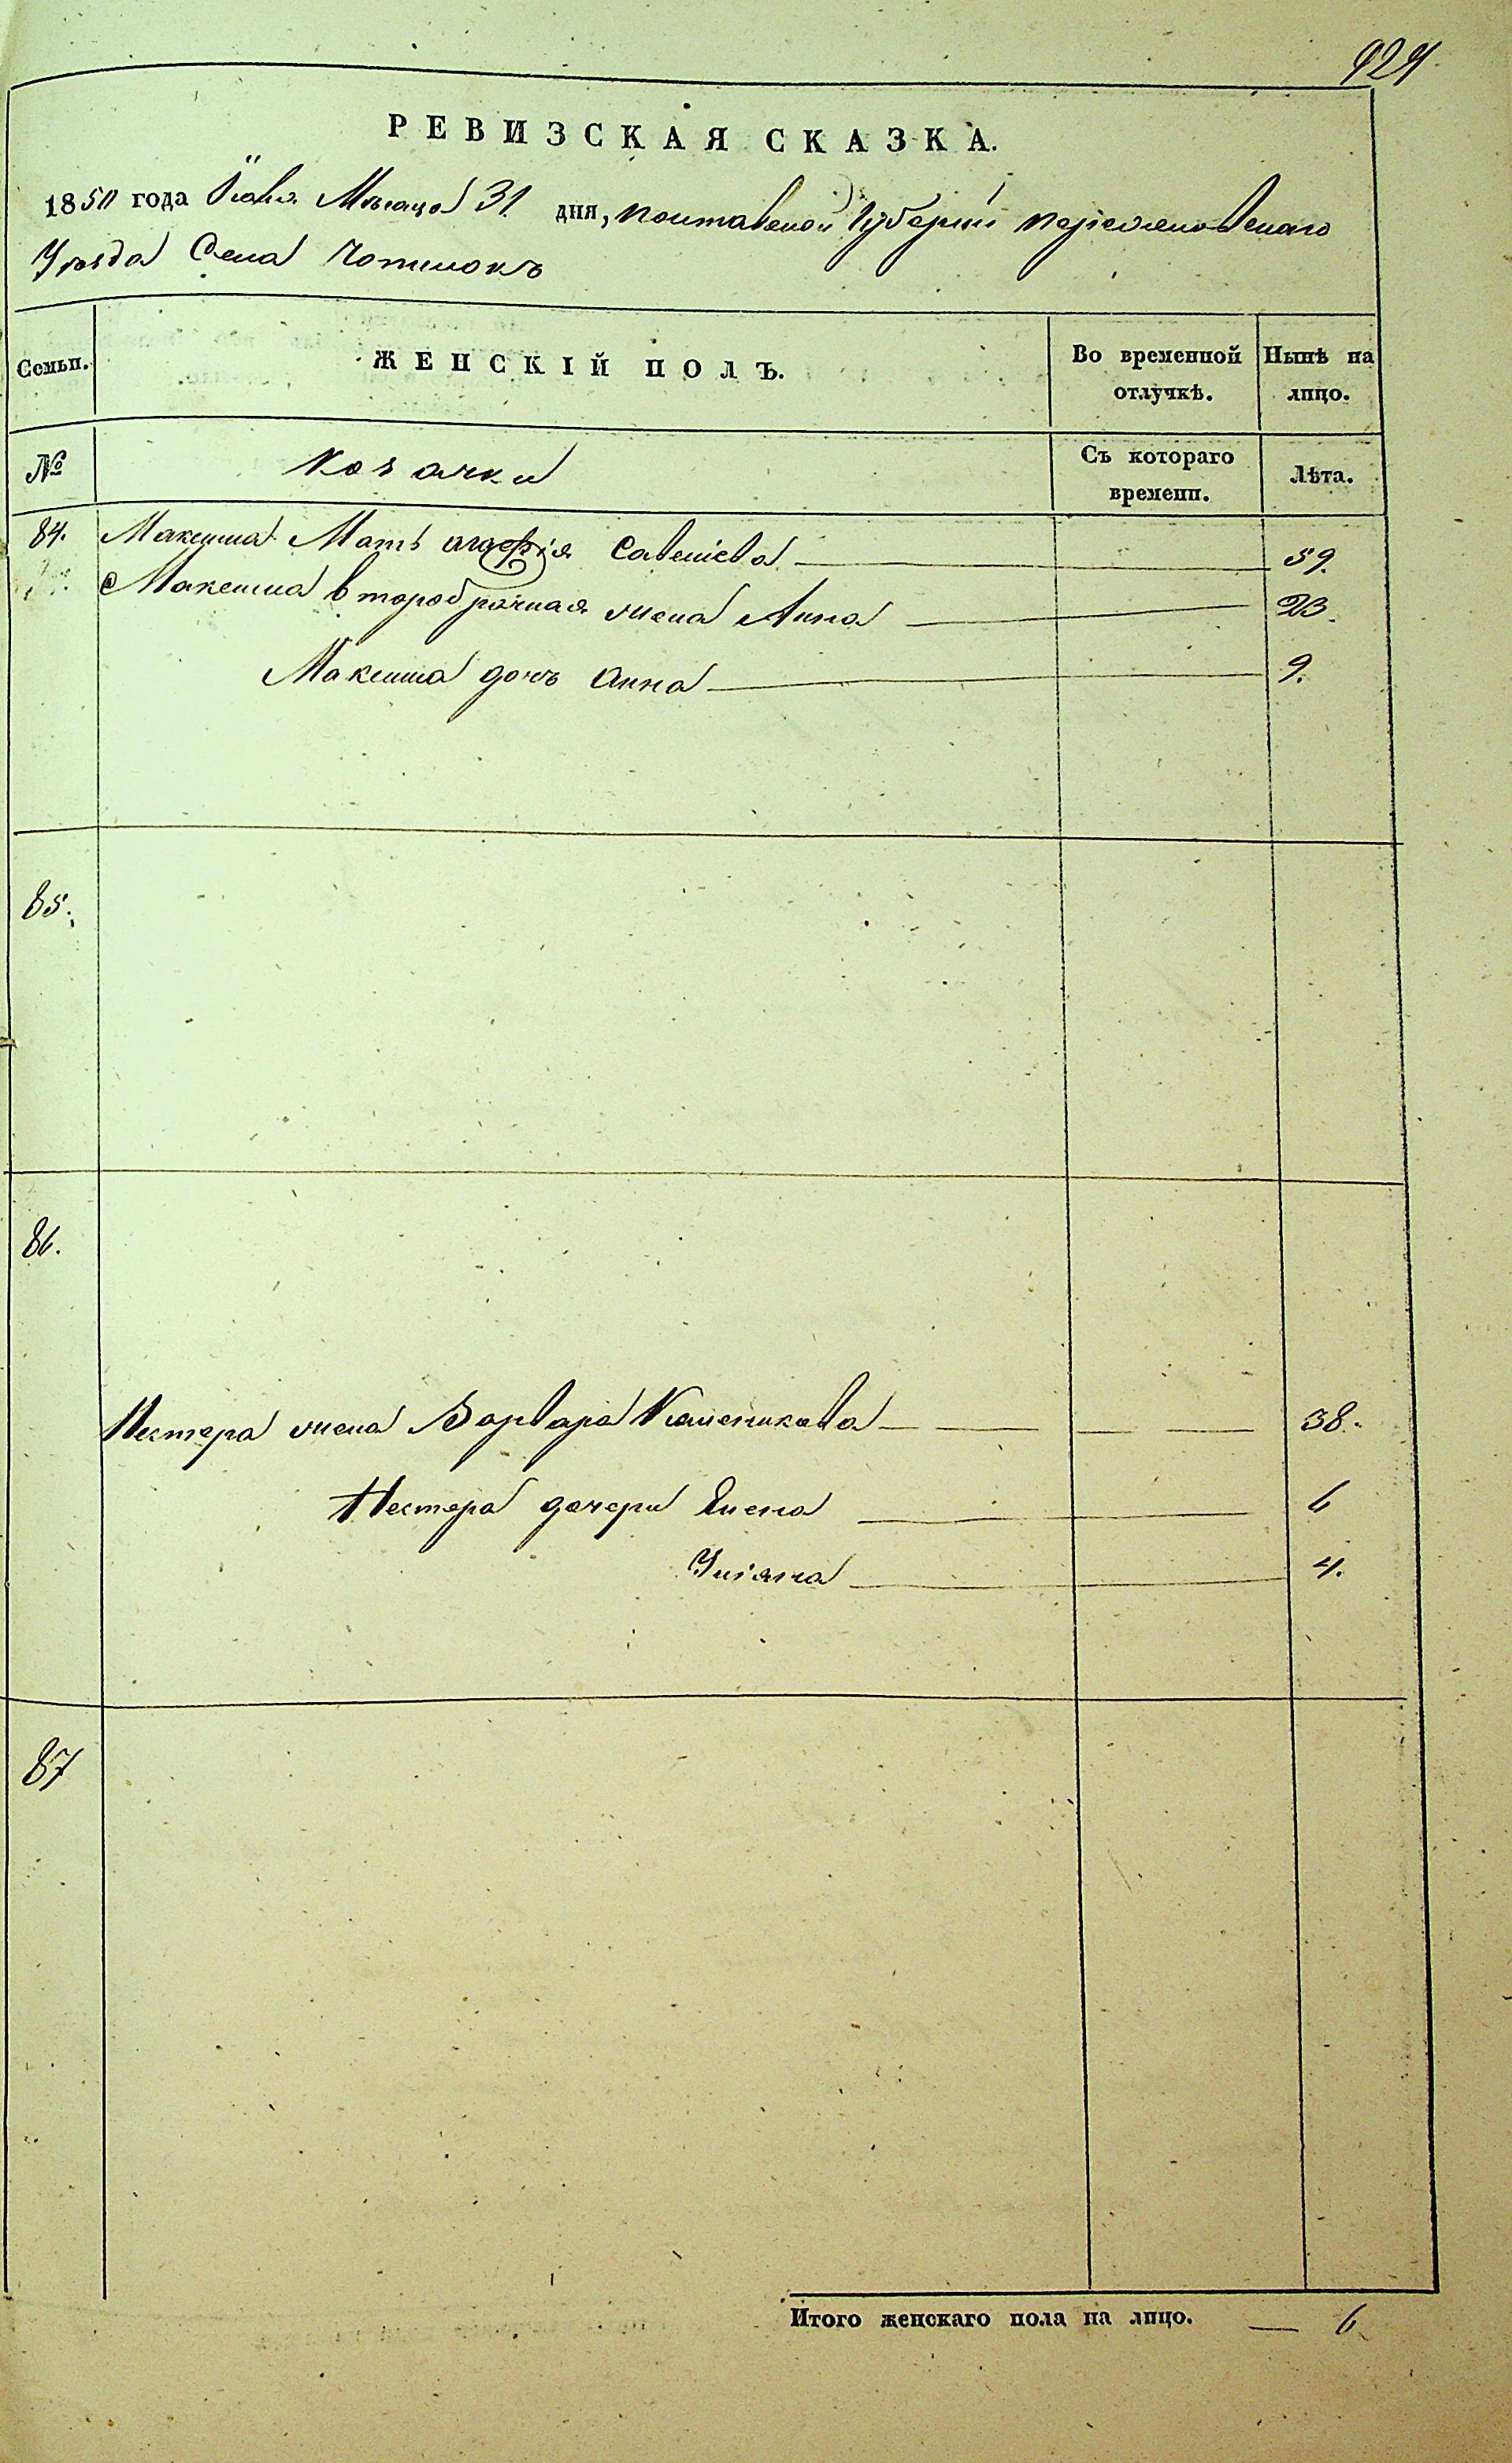 924
РЕВИЗСКАЯ СКАЗКА.
1850 года Іюля Мѣсяца 31 дня, Полтавской Губерніи Переясловскаго
Уѣзда Села Чопилокъ
Семьи. ЖЕНСКІЙ ПОЛЪ. Во временной отлучкѣ. Нынѣ на лицо.
№ Козачки Съ котораго времени. Лѣта.
84. Максима Мать агафія Савеліева 59.
Максима второбрачная жена Анна 23.
Максима дочь Анна 9.
85.
86.
Нестера жена Варвара 38.
Нестера дочери Елена 6
Уліяна 4.
87
Итого женскаго пола на лицо. 6